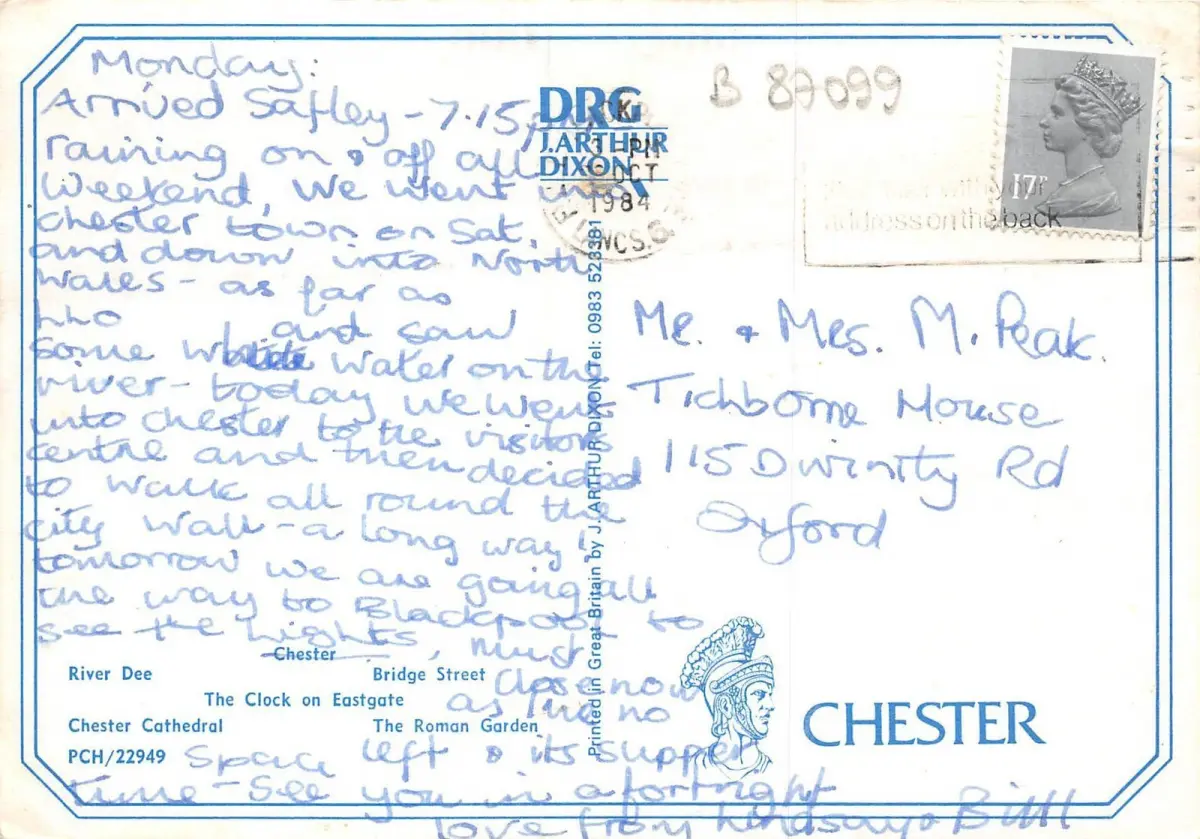 Monday:
Arrived Safley - 7.15pm
raining on & off all
weekend, we went into
chester town on Sat,
and down into North
Wales - as far as
Llo and saw
some white water on the
river - today we went
into chester to the visitors
centre and then decided
to walk all round the
city wall - a long way!
tomorrow we are going all
the way to Blackpool to
see the Lights, must
close now
as I've no
space left & its supper
time - See you in a fortnight
love from Lindsay & Bill
DRG
J.ARTHUR
DIXON
B 87099
PM
OCT
1984
LANCS.
17P
with your
address on the back
Mr. & Mrs. M. Peak.
Tichborne House
115 Divinity Rd
Oxford
Printed in Great Britain by J. ARTHUR DIXON Tel: 0983 523381
Chester
River Dee Bridge Street
The Clock on Eastgate
Chester Cathedral The Roman Garden
PCH/22949
CHESTER